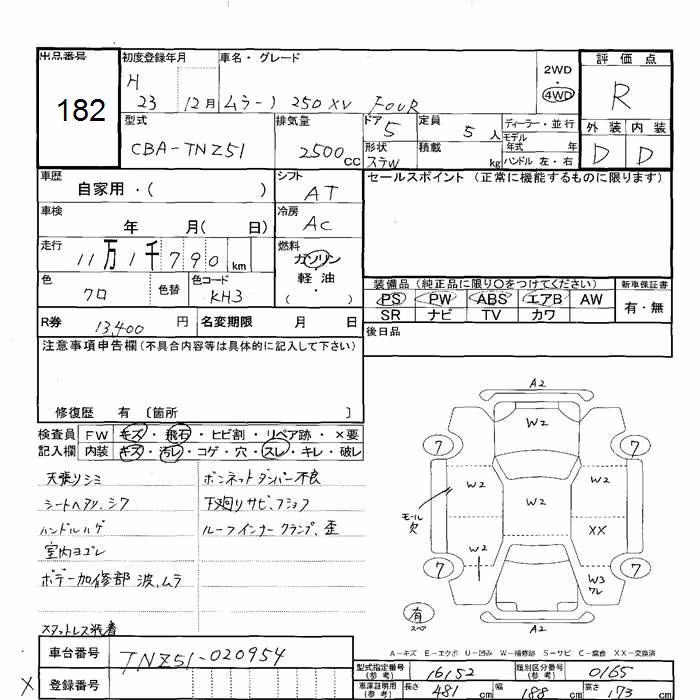 出品番号
182
初度登録年月
H
23 12月
車名・グレード
ムラーノ 250XV FOUR
2WD
・
4WD
評価点
R
外装 内装
D D
型式
CBA-TNZ51
排気量
2500cc
ドア
5
定員
5人
ディーラー・並行
モデル
年式 年
形状
ステW
積載
kg
ハンドル 左・右
車歴
自家用・( )
シフト
AT
セールスポイント (正常に機能するものに限ります)
車検
年 月( 日)
冷房
AC
走行
11万1千790km
燃料
ガソリン
軽油
( ・ )
色
クロ
色替
色コード
KH3
装備品 (純正品に限り〇をつけてください)
PS PW ABS エアB AW
SR ナビ TV カワ
新車保証書
有・無
R券
13,400 円
名変期限 月 日
後日品
注意事項申告欄(不具合内容等は具体的に記入して下さい)
修復歴 有 〔箇所 〕
検査員
記入欄
FW キズ・飛石・ヒビ割・リペア跡・×要
内装 キズ・汚レ・コゲ・穴・スレ・キレ・破レ
天張りシミ
シートヘタリ、シワ
ハンドルハゲ
室内ヨゴレ
ボデー加修部 波、ムラ
スタットレス装着
ボンネットダンパー不良
下廻りサビ、フショク
ルーフインナークランプ、歪
A2
W2
7 7
W2 W2 W2
モール
欠
XX
W2
7 7
W3
クレ
有
スペア
A2
A-キズ E-エクボ U-凹み W-補修跡 S-サビ C-腐食 XX-交換済
車台番号
TNZ51-020954
登録番号
X
型式指定番号
(参考)
16152
類別区分番号
(参考)
0165
車庫証明用
(参考)
長さ 481 cm
幅 188 cm
高さ 173 cm